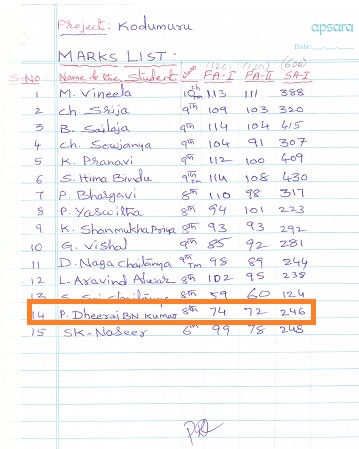 Project: Kodumuru
apsara
Date:
MARKS LIST:
(120) (120) (600)
S.NO. Name of the Student FA-I FA-II SA-I
1 M. Vineela 10th Tm 113 111 388
2 ch Srija 9th 109 103 320
3 B. Sailaja 9th 114 104 415
4 ch. Sowjanya 9th 104 91 307
5 K. Pranavi 9th 112 100 409
6 S. Hima Bindu 9th Tm 114 108 430
7 P. Bhargavi 8th 110 98 317
8 P. Yaswitha 8th 94 101 223
9 K. Shanmukha Priya 8th 93 93 292
10 G. Vishal 9th 85 92 281
11 D. Naga Chaitanya 9th Tm 98 89 244
12 L. Aravind 8th 102 95 238
13 S. Sai 8th 59 60 124
14 P. Dheeraj BN Kumar 8th 74 72 246
15 SK. Naseer 6th 99 78 248